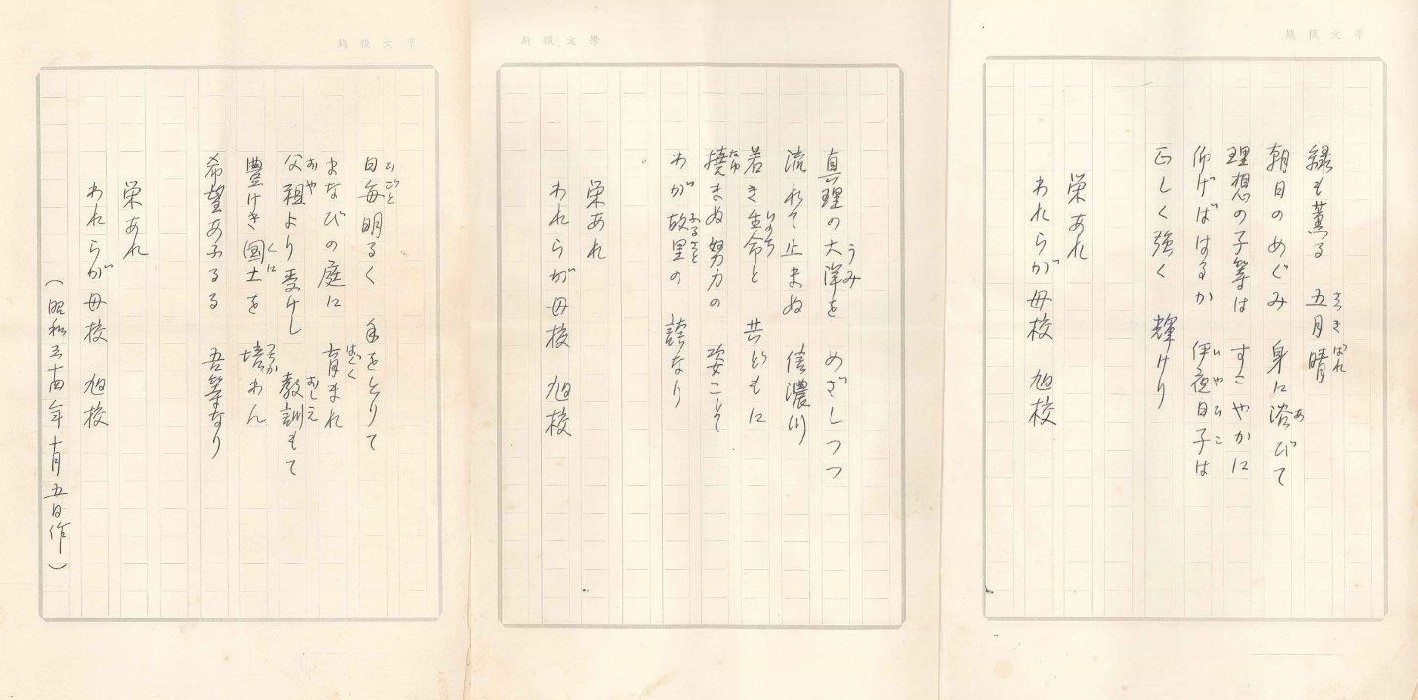 越後文學
緑も薫る 五月晴
さつきばれ
朝日のめぐみ 身に浴びて
あ
理想の子等は すこやかに
仰げばはるか 伊夜日子は
いやひこ
正しく強く 輝けり
栄あれ
われらが母校 旭校
越後文學
真理の大洋を めざしつつ
うみ
流れて止まぬ 信濃川
若き生命と 共に
いのち
撓まぬ努力の 姿こそ
たゆ
わが故里の 誇なり
ふるさと
栄あれ
われらが母校 旭校
越後文學
日毎明るく 手をとりて
ひごと
まなびの庭に 育まれ
はぐく
父祖より受けし 教訓もて
おや おしえ
豊けき国土を 培わん
くに つちか
希望あふるる 吾等なり
栄あれ
われらが母校 旭校
(昭和三十四年十月五日作)